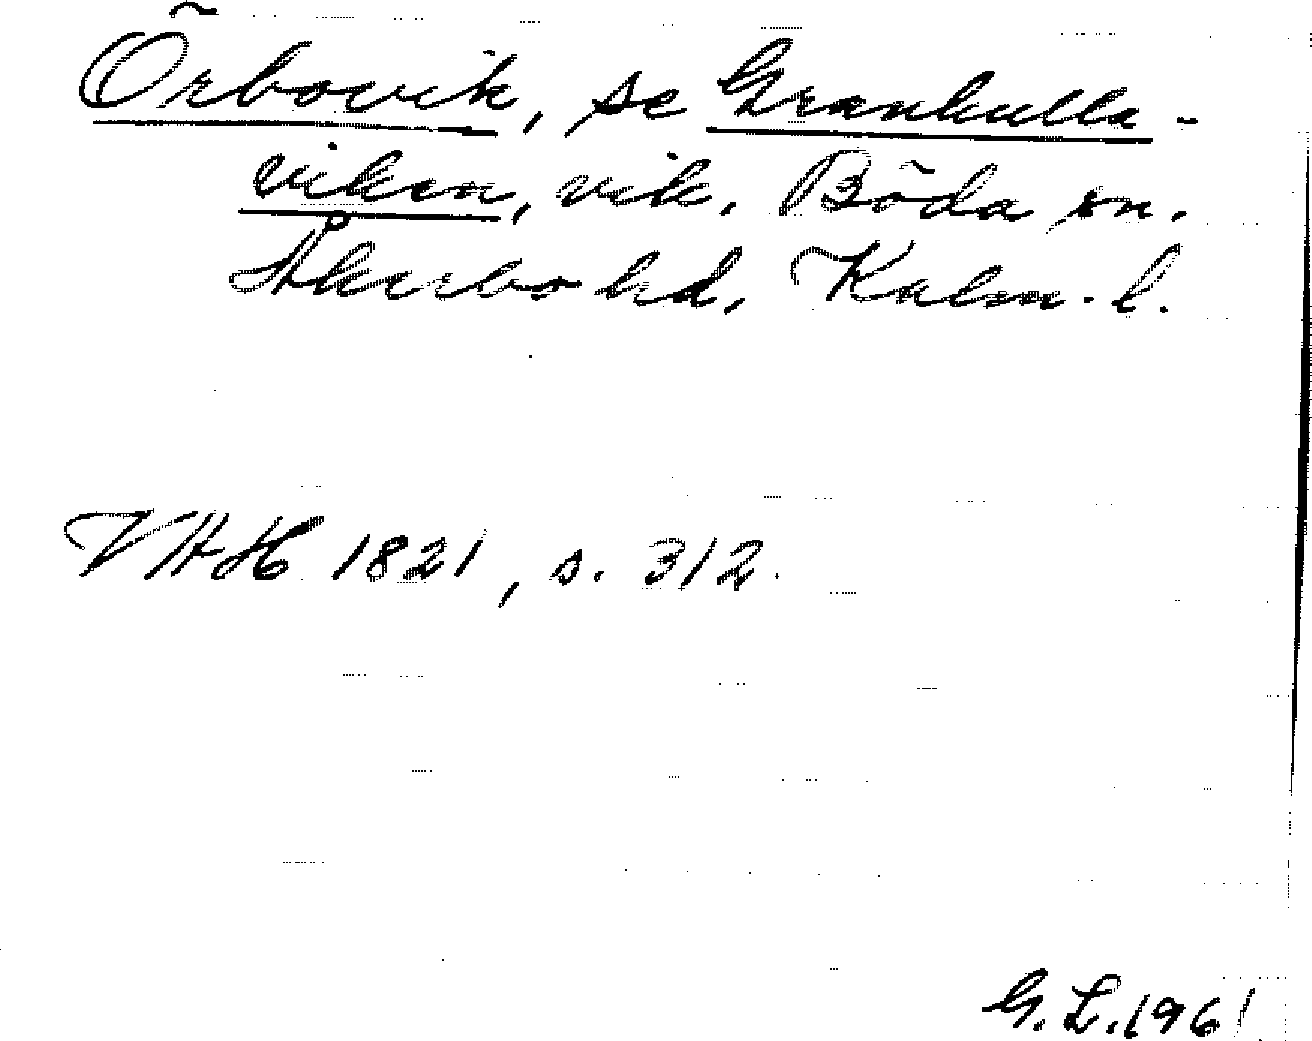 Örbovik, se Grankulla-
viken, vik. Böda sn.
Åkerbo hd, Kalm. l.
VHH 1821, s. 312.
G. L. 1961